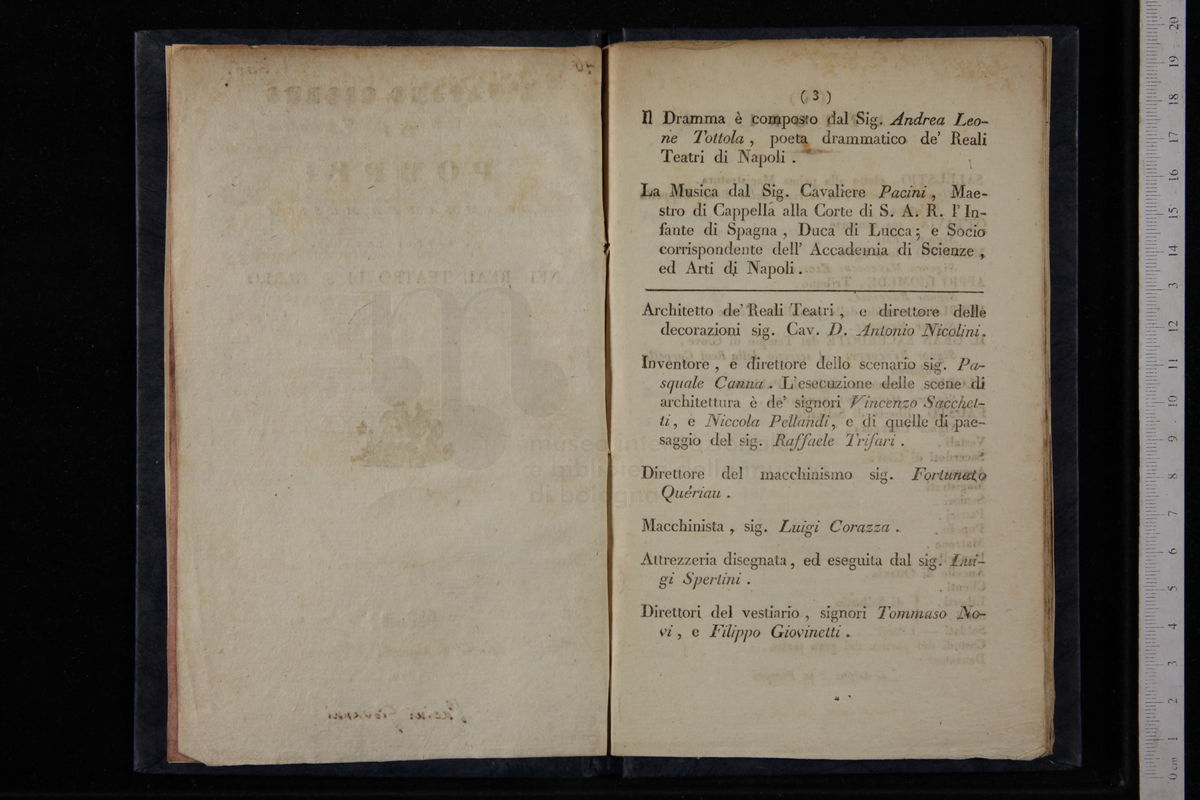 ( 3 )
Il Dramma è composto dal Sig. Andrea Leo-
ne Tottola , poeta drammatico de' Reali
Teatri di Napoli .
La Musica dal Sig. Cavaliere Pacini , Mae-
stro di Cappella alla Corte di S. A. R. l' In-
fante di Spagna , Duca di Lucca ; e Socio
corrispondente dell' Accademia di Scienze ,
ed Arti di Napoli .
Architetto de' Reali Teatri , e direttore delle
decorazioni sig. Cav. D. Antonio Nicolini.
Inventore , e direttore dello scenario sig. Pa-
squale Canna . L'esecuzione delle scene di
architettura è de' signori Vincenzo Sacchet-
ti , e Niccola Pellandi, e di quelle di pae-
saggio del sig. Raffaele Trifari .
Direttore del macchinismo sig. Fortunato
Quériau .
Macchinista , sig. Luigi Corazza .
Attrezzeria disegnata , ed eseguita dal sig. Lui-
gi Spertini .
Direttori del vestiario , signori Tommaso No-
vi , e Filippo Giovinetti .